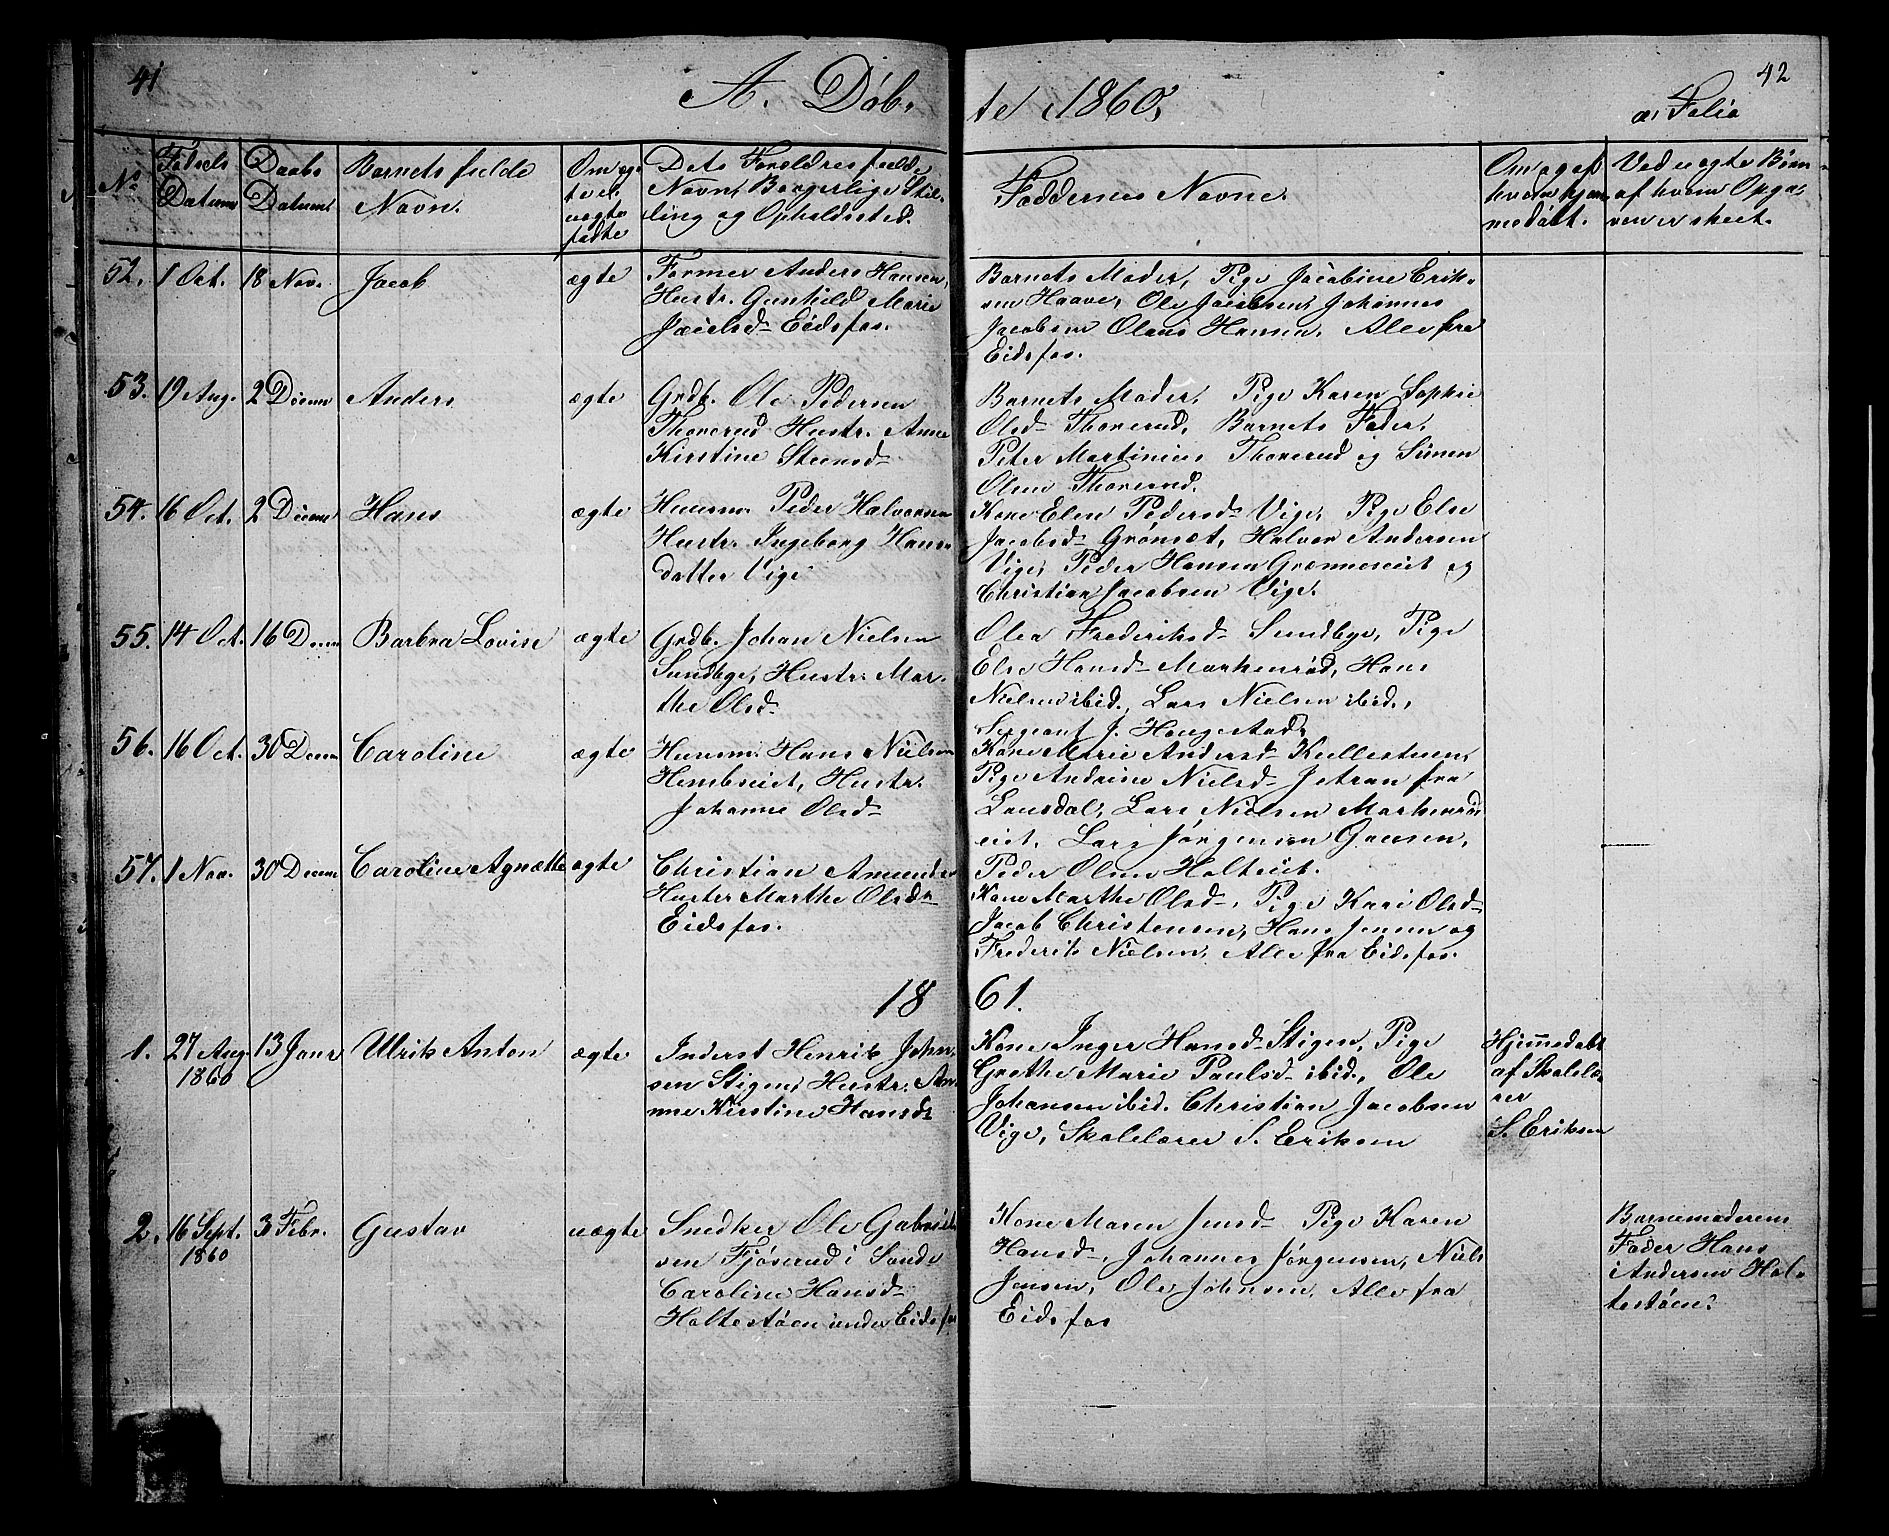 41
A. Døb,
te 1860,
42
a, Folio
No
Fødsels Datum
Daabs Datum
Barnets fulde Navn.
Om ægte el. uægte fødte
Dets Foreldres fulde Navn, Borgerlige Stilling og Opholdssted.
Faddernes Navne.
Om og af hvem hjemmedøbt.
Ved uægte Børn af hvem Opgaven er skeet.
52. 1 Oct. 18 Nov. Jacob ægte
Former Anders Hansen,
Hustr. Gunhild Marie
Jacobsd- Eidsfos.
Barnets Moder, Pige Jacobine Erik-
sen Haave, Ole Jacobsen, Johannes
Jacobsen Olaus Hansen, Alle fra
Eidsfos.
53. 19 Aug. 2 Decem Anders ægte
Grdb. Ole Pedersen
Thorerud Hustr. Anne
Kirstine Steensd-
Barnets Moder, Pige Karen Sophie
Olsd- Thorerud, Barnets Fader,
Peter Martinius Thorerud og Simen
Olsen Thorerud.
54. 16 Oct. 2 Decem Hans ægte
Huusm. Peder Halvorsen
Hustr. Ingeborg Hans-
datter Vige
Kone Elen Pedersd- Vige, Pige Else
Jacobsd- Grønset, Halvor Andersen
Vige, Peder Hansen Grønneseiet og
Christian Jacobsen Vige.
55. 14 Oct. 16 Decem Barbra Lovise ægte
Grdb. Johan Nielsen
Sundbye, Hustr. Mar-
the Olsd-
Olea Frederiksd- Sundbye, Pige
Else Hansd- Markerød, Hans
Nielsen ibid., Lars Nielsen ibid.,
Sergeant J. Haugestad,
56. 16 Oct. 30 Decem Caroline ægte
Huusm. Hans Nielsen
Hembseiet, Hustr.
Johanne Olsd-
Kone Marie Andersd- Kullesteen,
Pige Andrine Nielsd- Jetran fra
Lansdal, Lars Nielsen Markerød
eiet, Lars Jørgensen Gausen,
Peder Olsen Holteiet.
57. 1 Nov. 30 Decem Caroline Agnætte ægte
Christian Amunds
Huster Marthe Olsdr
Eidsfos.
Kone Marthe Olsd-, Pige Kari Olsd-
Jacob Christensen, Hans Jensen og
Frederik Nielsen, Alle fra Eidsfos.
18 61.
1. 27 Aug. 1860 13 Janr Ulrik Anton ægte
Inderst Henrik Johan
sen Stigen, Hustr. An-
ne Kirstine Hansd-
Kone Inger Hansd- Stigen, Pige
Grethe Marie Paulsd- ibid., Ole
Johansen ibid. Christian Jacobsen
Vige, Skolelærer S. Eriksen
Hjemmedøbt
af Skolelæ-
rer
S. Eriksen
2. 16 Sept. 1860 3 Febr. Gustav uægte
Snedker Ole Gabriel
sen Fjøserud i Sande
Caroline Hansd-
Holtestøen under Eidsfos
Kone Maren Jensd- Pige Karen
Hansd-, Johannes Jørgensen, Niels
Jensen, Ole Johnsen, Alle fra
Eidsfos
Barnemoderens
Fader Hans
Andersen Hol-
testøen.